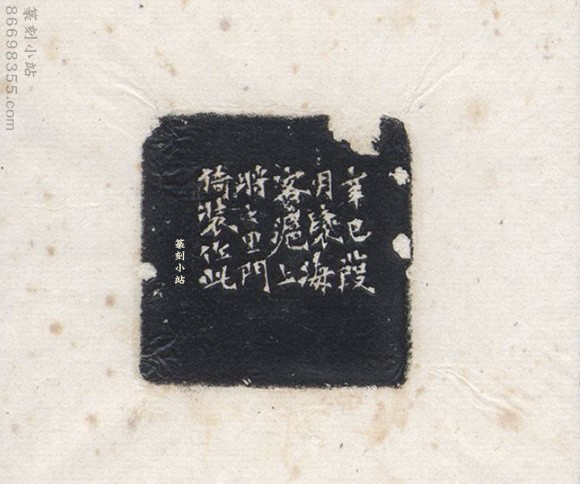 辛巳葭
月褎海
客滬上
將之里門
倚裝作此
篆刻小站
篆刻小站
86698355.com